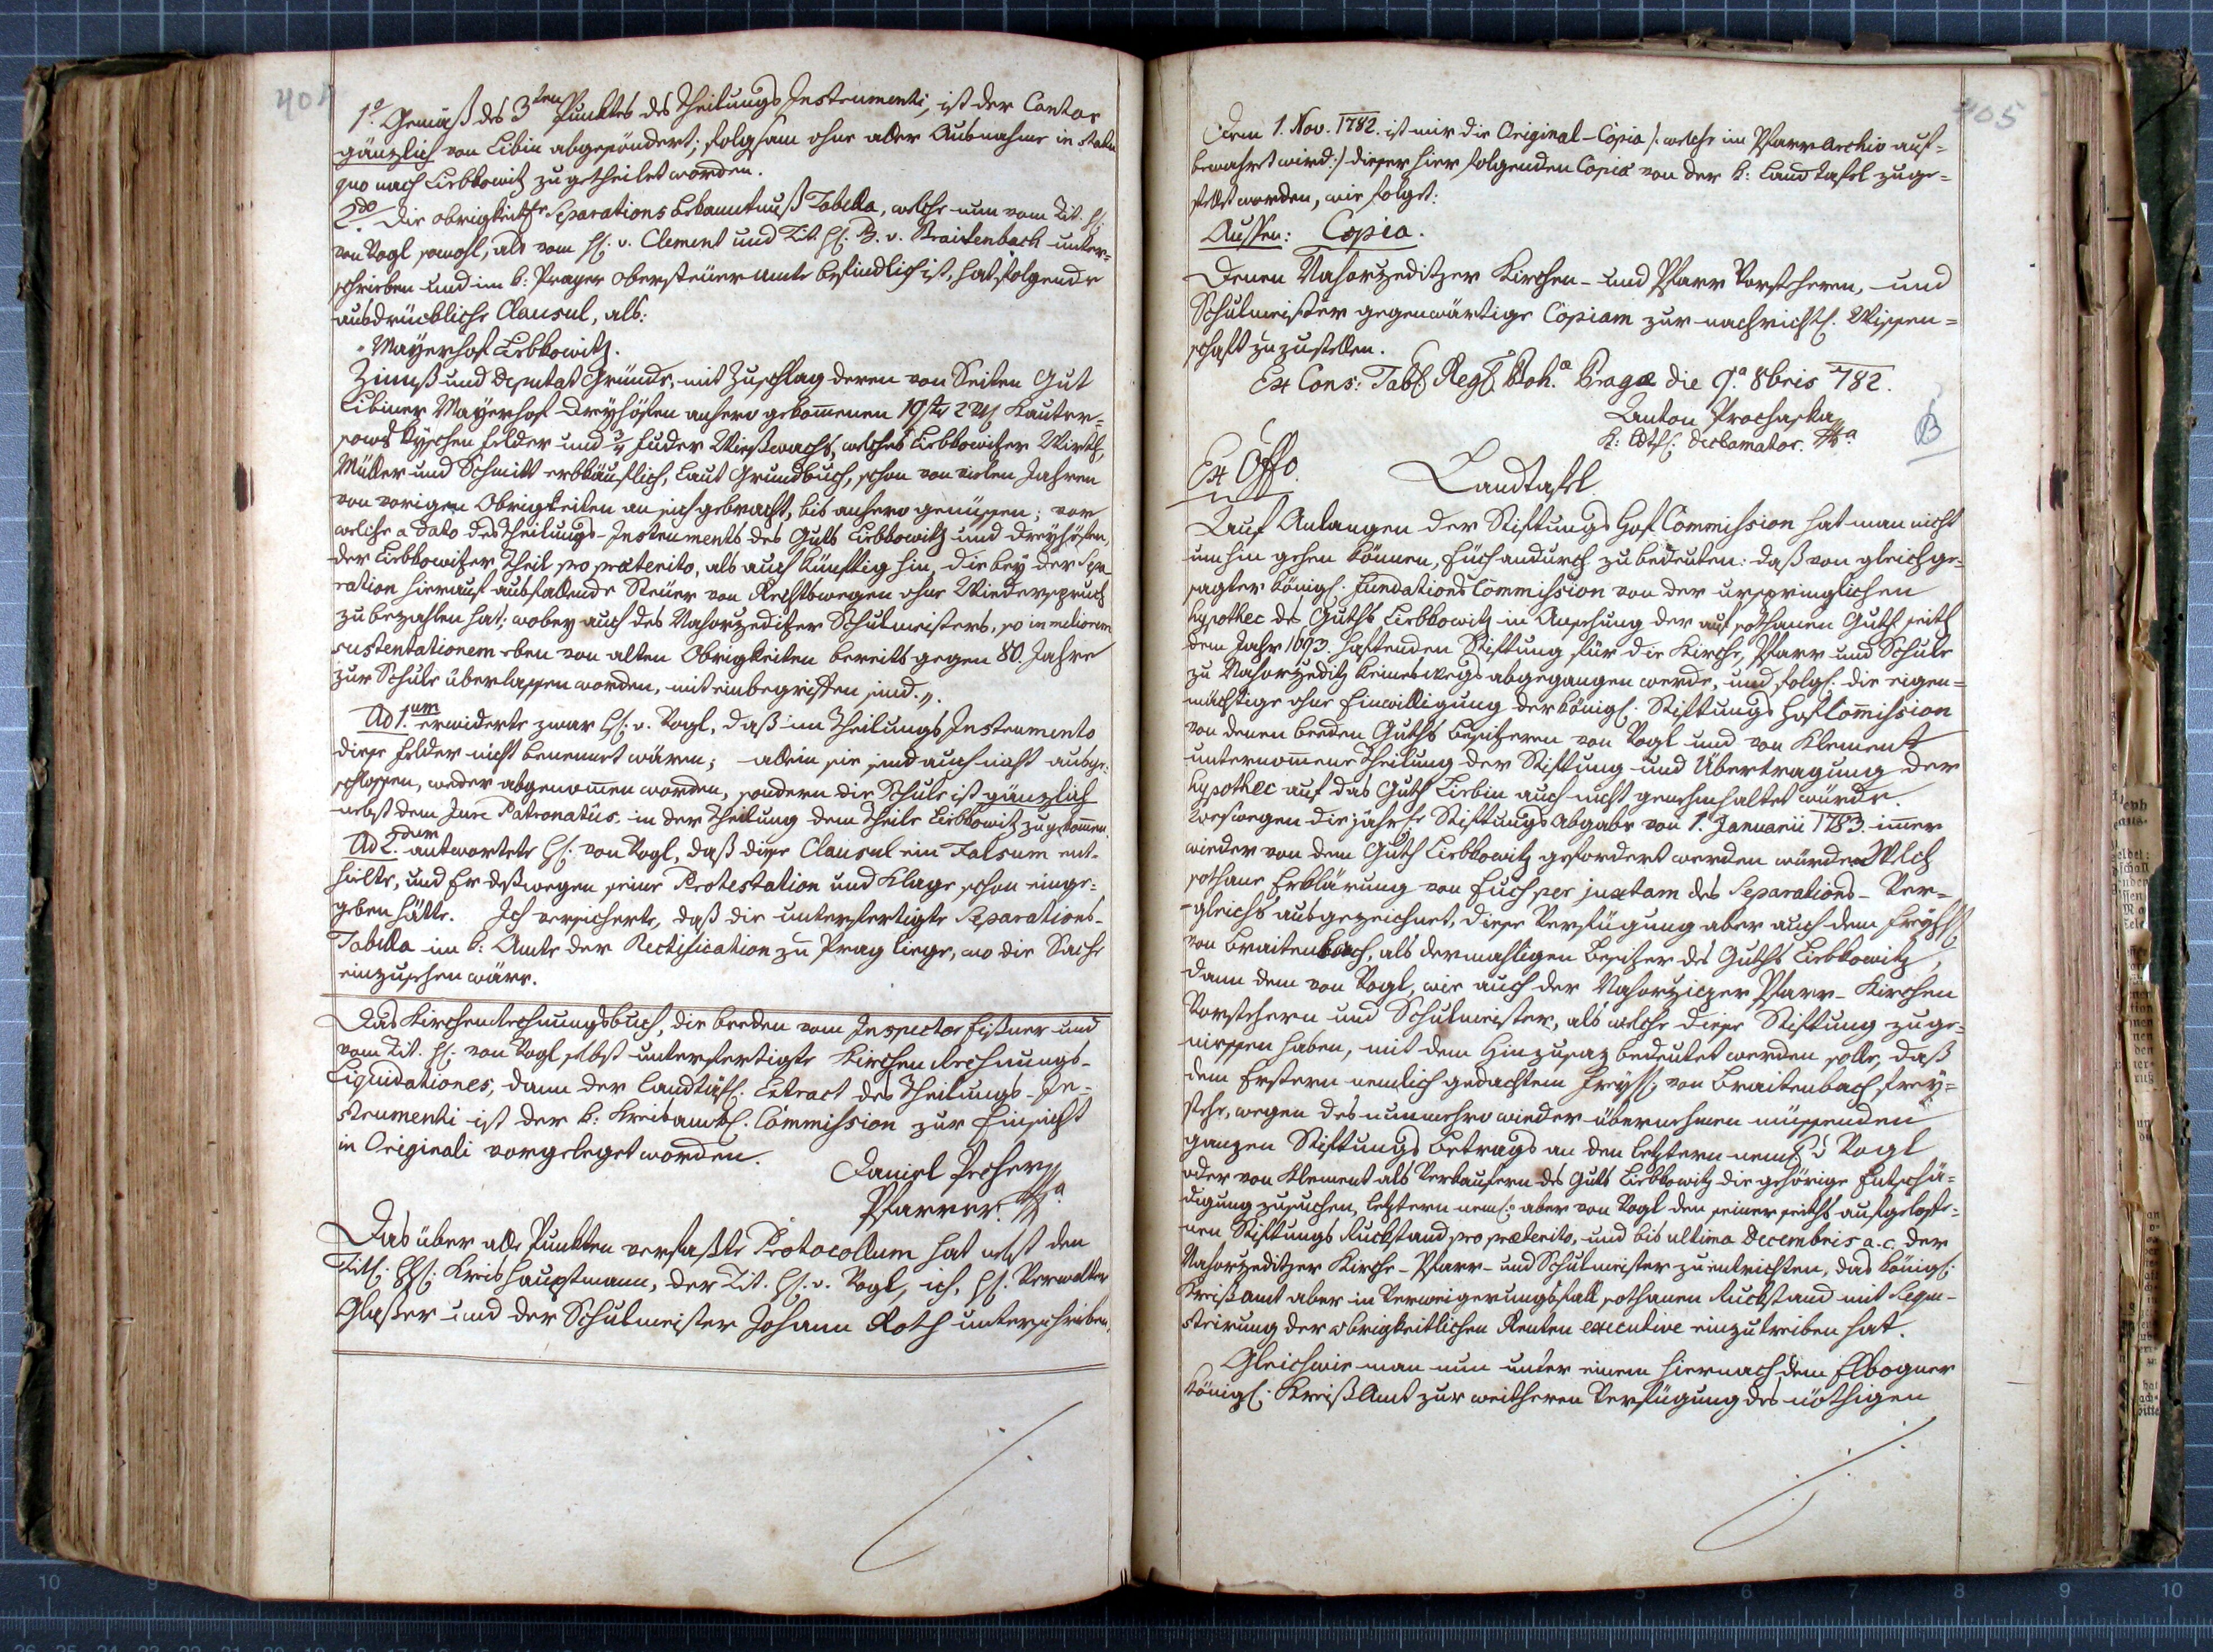 404
1o. Gemäß des 3ten Punktes des Theilungs Instrumenti, ist der Cantor
gänzlich von Libin abgesöndert; folgsam ohne aller Ausnahme in statu
quo nach Liebkowitz zugetheilet worden.
2do. Die obrigkeitl. Separations Bekanntnuß Tabella, welche nun vom Tit. H:
von Vogl sowohl, als vom H: v. Clement und Tit. H: B. v. Braitenbach unter=
schrieben und im k: Prager Obersteüeramte befindlich ist, hat folgende
ausdrückliche Clausul, als:
"Mayerhof Liebkowitz.
Zinnß und Deputat Gründe, mit Zuschlag deren von Seiten Gut
Libiner Mayerhof Dreyhöfen anhero gekom̅enen 19 Kauter=
sowskyschen Felder und 3/4 Fuder Wießwachs, welches Liebkowitzer Wirth,
Müller und Schmitt erbkäuflich, Laut Grundbuch, schon von vielen Jahren
von vorigen Obrigkeiten an sich gebracht, bis anhero genüssen; vor
welche a dato des Theilungs-Instruments des Guts Liebkowitz und Dreyhöfen,
der Liebkowitzer Theil pro præterito, als auch künftig hin, die bey der Sepa
ration hierauf ausfallende Steüer von Rechtswegen ohne Wiederspruch
zu bezahlen hat; wobey auch des Nahorzeditzer Schulmeisters, so in meliorem
sustentationem eben von alten Obrigkeiten bereits gegen 80. Jahre
zur Schule überlassen worden, mit einbegriffen sind.".
Ad 1um erwiderte zwar H: v. Vogl, daß im Theilungs Instrumento
diese Felder nicht benennet wären; allein sie sind auch nicht ausge=
schlossen, weder abgenom̅en worden, sondern die Schule ist gänzlich
nebst dem Jure Patronatûs in der Theilung dem Theile Liebkowitz zugekom̅en.
Ad 2dum antwortete H: von Vogl, daß diese Clausul ein Falsum ent=
hielte, und Er deßwegen seine Protestation und Klage schon einge=
geben hätte. Ich versicherte, daß die unterfertigte Separations-
Tabella im k: Amte der Rectification zu Prag liege, wo die Sache
einzusehen wäre.
Das Kirchenrechnungsbuch, die beeden vom Inspector Eißner und
vom Tit. H: von Vogl selbst unterfertigte Kirchen Rechnungs-
Liquidationes, dann der Landtäfl. Extract des Theilungs-In=
strumenti ist der k: Kreisamtl. Commission zur Einsicht
in Originali vorgeleget worden.
Daniel Pecher
Pfarrer.
Das über alle Punkten verfaßte Protocollum hat nebst den
Titl: H: Kreishauptmann, der Tit. H: v. Vogl, ich, H: Verwalter
Glaßer und der Schulmeister Johann Roth unterschrieben.
405
Dem 1. Nov. 1782. ist mir die Original-Copia /: welche im Pfarr Archiv auf=
bewahret wird:/ dieser hier folgenden Copiæ von der k: Landtafel zuge=
stellt worden, wie folget:
Aussen: Copia.
Denen Nahorzeditzer Kirchen- und Pfarr Vorstehern, und
Schulmeister gegenwärtige Copiam zur nachrichtl. Wissen=
schaft zuzustellen.
Ex Cons: Tabl. Regl. Boh.a Pragæ die 9.a 8bris 782.
Anton Prochaska
k: Ldtfl. Declamator.
B
Ex Offo.
Landtafel.
Auf Anlangen der Stiftungs Hof Commission hat man nicht
umhin gehen können, Euch andurch zu bedeuten: daß von gleichge=
sagter königl: Fundations Commission von der urspringlichen
Hypothec des Guths Liebkowitz in Ansehung der auf sothanen Guth seith
dem Jahr 1693. haftenden Stiftung für die Kirche, Pfarr und Schule
zu Nahorzeditz keineswegs abgegangen werde, und folgl. die eigen=
mächtige ohne Einwilligung der königl: Stiftungs Hof Com̅ission
von denen beeden Guths Besitzeren von Vogl und von Klement
unternom̅ene Theilung der Stiftung und Übertragung der
Hypothec auf das Guth Liebin auch nicht genehmhaltet würde.
Weswegen die jährle Stiftungs Abgabe von 1. Januarii 1783. im̅er
wieder von dem Guth Liebkowitz gefordert werden würde. Welch
sothane Erklärung von Euch per juxtam des Separations-Ver=
gleichs ausgezeichnet, diese Verfügung aber auch dem Freyh:
von Braitenbach, als dermahligen Besitzer des Guths Liebkowitz,
dann dem von Vogl, wie auch der Nahorziczer Pfarr- Kirchen
Vorstehern und Schulmeister, als welche diese Stiftung zuge=
niessen haben, mit dem Hinzusaz bedeutet werden solle, daß
dem Erstern nemlich gedachtem Freyh. von Braitenbach frey=
stehe, wegen des nunmehro wieder übernehmen müssenden
ganzen Stiftungs Betrags an den letztern neml. v Vogl
oder von Klement als Verkaufern des Guts Liebkowitz die gehörige Entschä=
digung zusuchen, letztern neml: aber von Vogl den seiner seiths aufgeloffe=
nen Stiftungs Ruckstand pro præterito, und bis ultima Decembris a. c. der
Nahorzeditzer Kirche- Pfarr- und Schulmeister zu entrichten, das königl:
Kreißamt aber in Verweigerungsfall sothanen Ruckstand mit Seque=
strirung der obrigkeitlichen Renten executive einzutreiben hat.
Gleichwie man nun unter einem hiernach dem Elbogner
königl: Kreiß Amt zur weitheren Verfügung des nöthigen